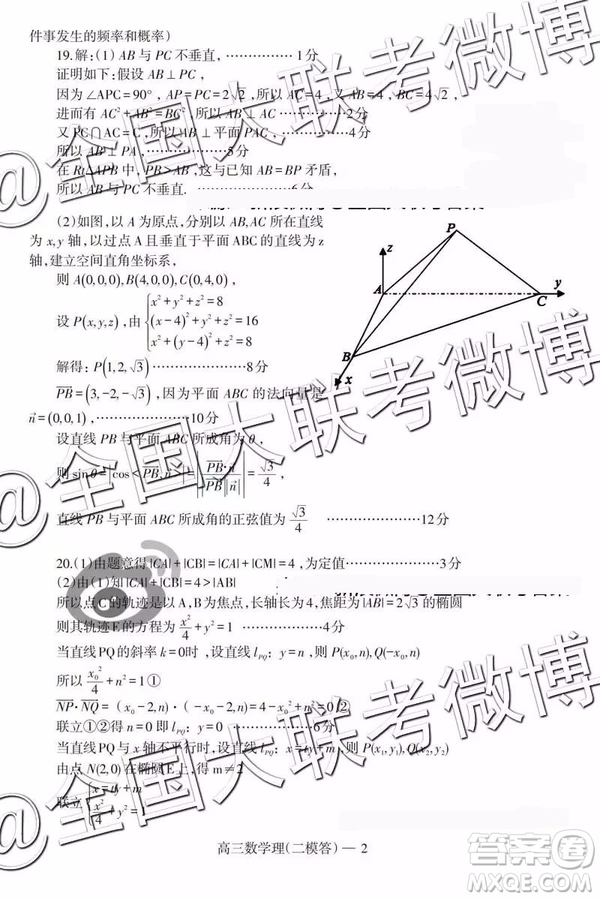 件事发生的频率和概率)
19.解:(1) AB 与 PC 不垂直, ………………1分
证明如下:假设 AB⊥PC,
因为∠APC=90°, AP=PC=2√2, 所以 AC=4, 又 AB=4, BC=4√2,
进而有 AC²+AB²=BC², 所以 AB⊥AC, ………3分
又 PC∩AC=C, 所以 AB⊥平面 PAC,
所以 AB⊥PA, ………………5分
在 Rt△APB 中, PB>AB, 这与已知 AB=BP 矛盾,
所以 AB 与 PC 不垂直. ………………6分
(2)如图,以 A 为原点,分别以 AB,AC 所在直线
为 x,y 轴,以过点 A 且垂直于平面 ABC 的直线为 z
轴,建立空间直角坐标系,
则 A(0,0,0),B(4,0,0),C(0,4,0),
设 P(x,y,z),由{x²+y²+z²=8
(x-4)²+y²+z²=16
x²+(y-4)²+z²=8
解得: P(1,2,√3) ………………8分
PB=(3,-2,-√3),因为平面 ABC 的法向量是
n=(0,0,1), ………………10分
设直线 PB 与平面 ABC 所成角为 θ,
则 sinθ=|cos<PB,n>|=|PB·n/|PB||n||=√3/4,
直线 PB 与平面 ABC 所成角的正弦值为 √3/4 ………………12分
z
P
A
y
C
B
x
20.(1)由题意得|CA|+|CB|=|CA|+|CM|=4,为定值………………3分
(2)由(1)知|CA|+|CB|=4>|AB|
所以点 C 的轨迹是以 A,B 为焦点,长轴长为 4,焦距为 |AB|=2√3 的椭圆
则其轨迹 E 的方程为 x²/4+y²=1 ………………4分
当直线 PQ 的斜率 k=0时,设直线 l_PQ: y=n,则 P(x₀,n),Q(-x₀,n)
所以 x₀²/4+n²=1①
NP·NQ=(x₀-2,n)·(-x₀-2,n)=4-x₀²+n²=0②
联立①②得 n=0 即 l_PQ: y=0
当直线 PQ 与 x 轴不平行时,设直线 l_PQ: x=ty+m,则 P(x₁,y₁),Q(x₂,y₂)
由点 N(2,0)在椭圆 E 上,得 m≠2
联立{x=ty+m
高三数学理(二模答) — 2
@全国大联考微博
答案圈
MXQE.COM